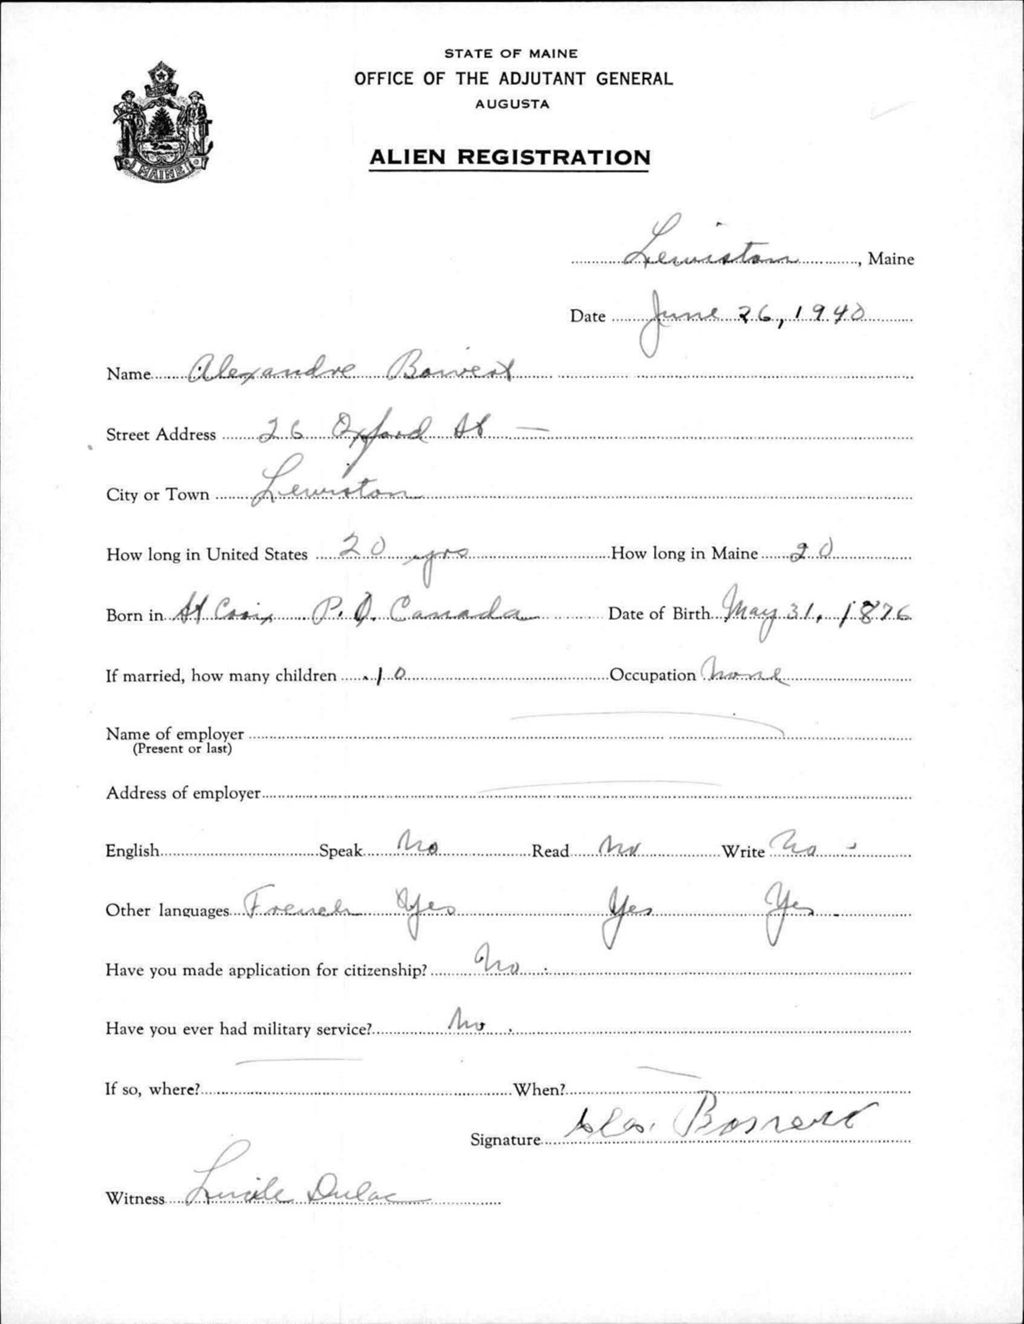 STATE OF MAINE
OFFICE OF THE ADJUTANT GENERAL
AUGUSTA
MAINE
ALIEN REGISTRATION
Lewiston, Maine
Date June 26, 1940
Name Alexandre Boivert
Street Address 26 Oxford St
City or Town Lewiston
How long in United States 20 yrs How long in Maine 20
Born in St Croix P.Q. Canada Date of Birth May 31, 1876
If married, how many children 10 Occupation None
Name of employer
(Present or last)
Address of employer
English Speak No Read No Write No
Other languages French Yes Yes Yes
Have you made application for citizenship? No
Have you ever had military service? No
If so, where? When?
Signature
Witness Lucile Dulac